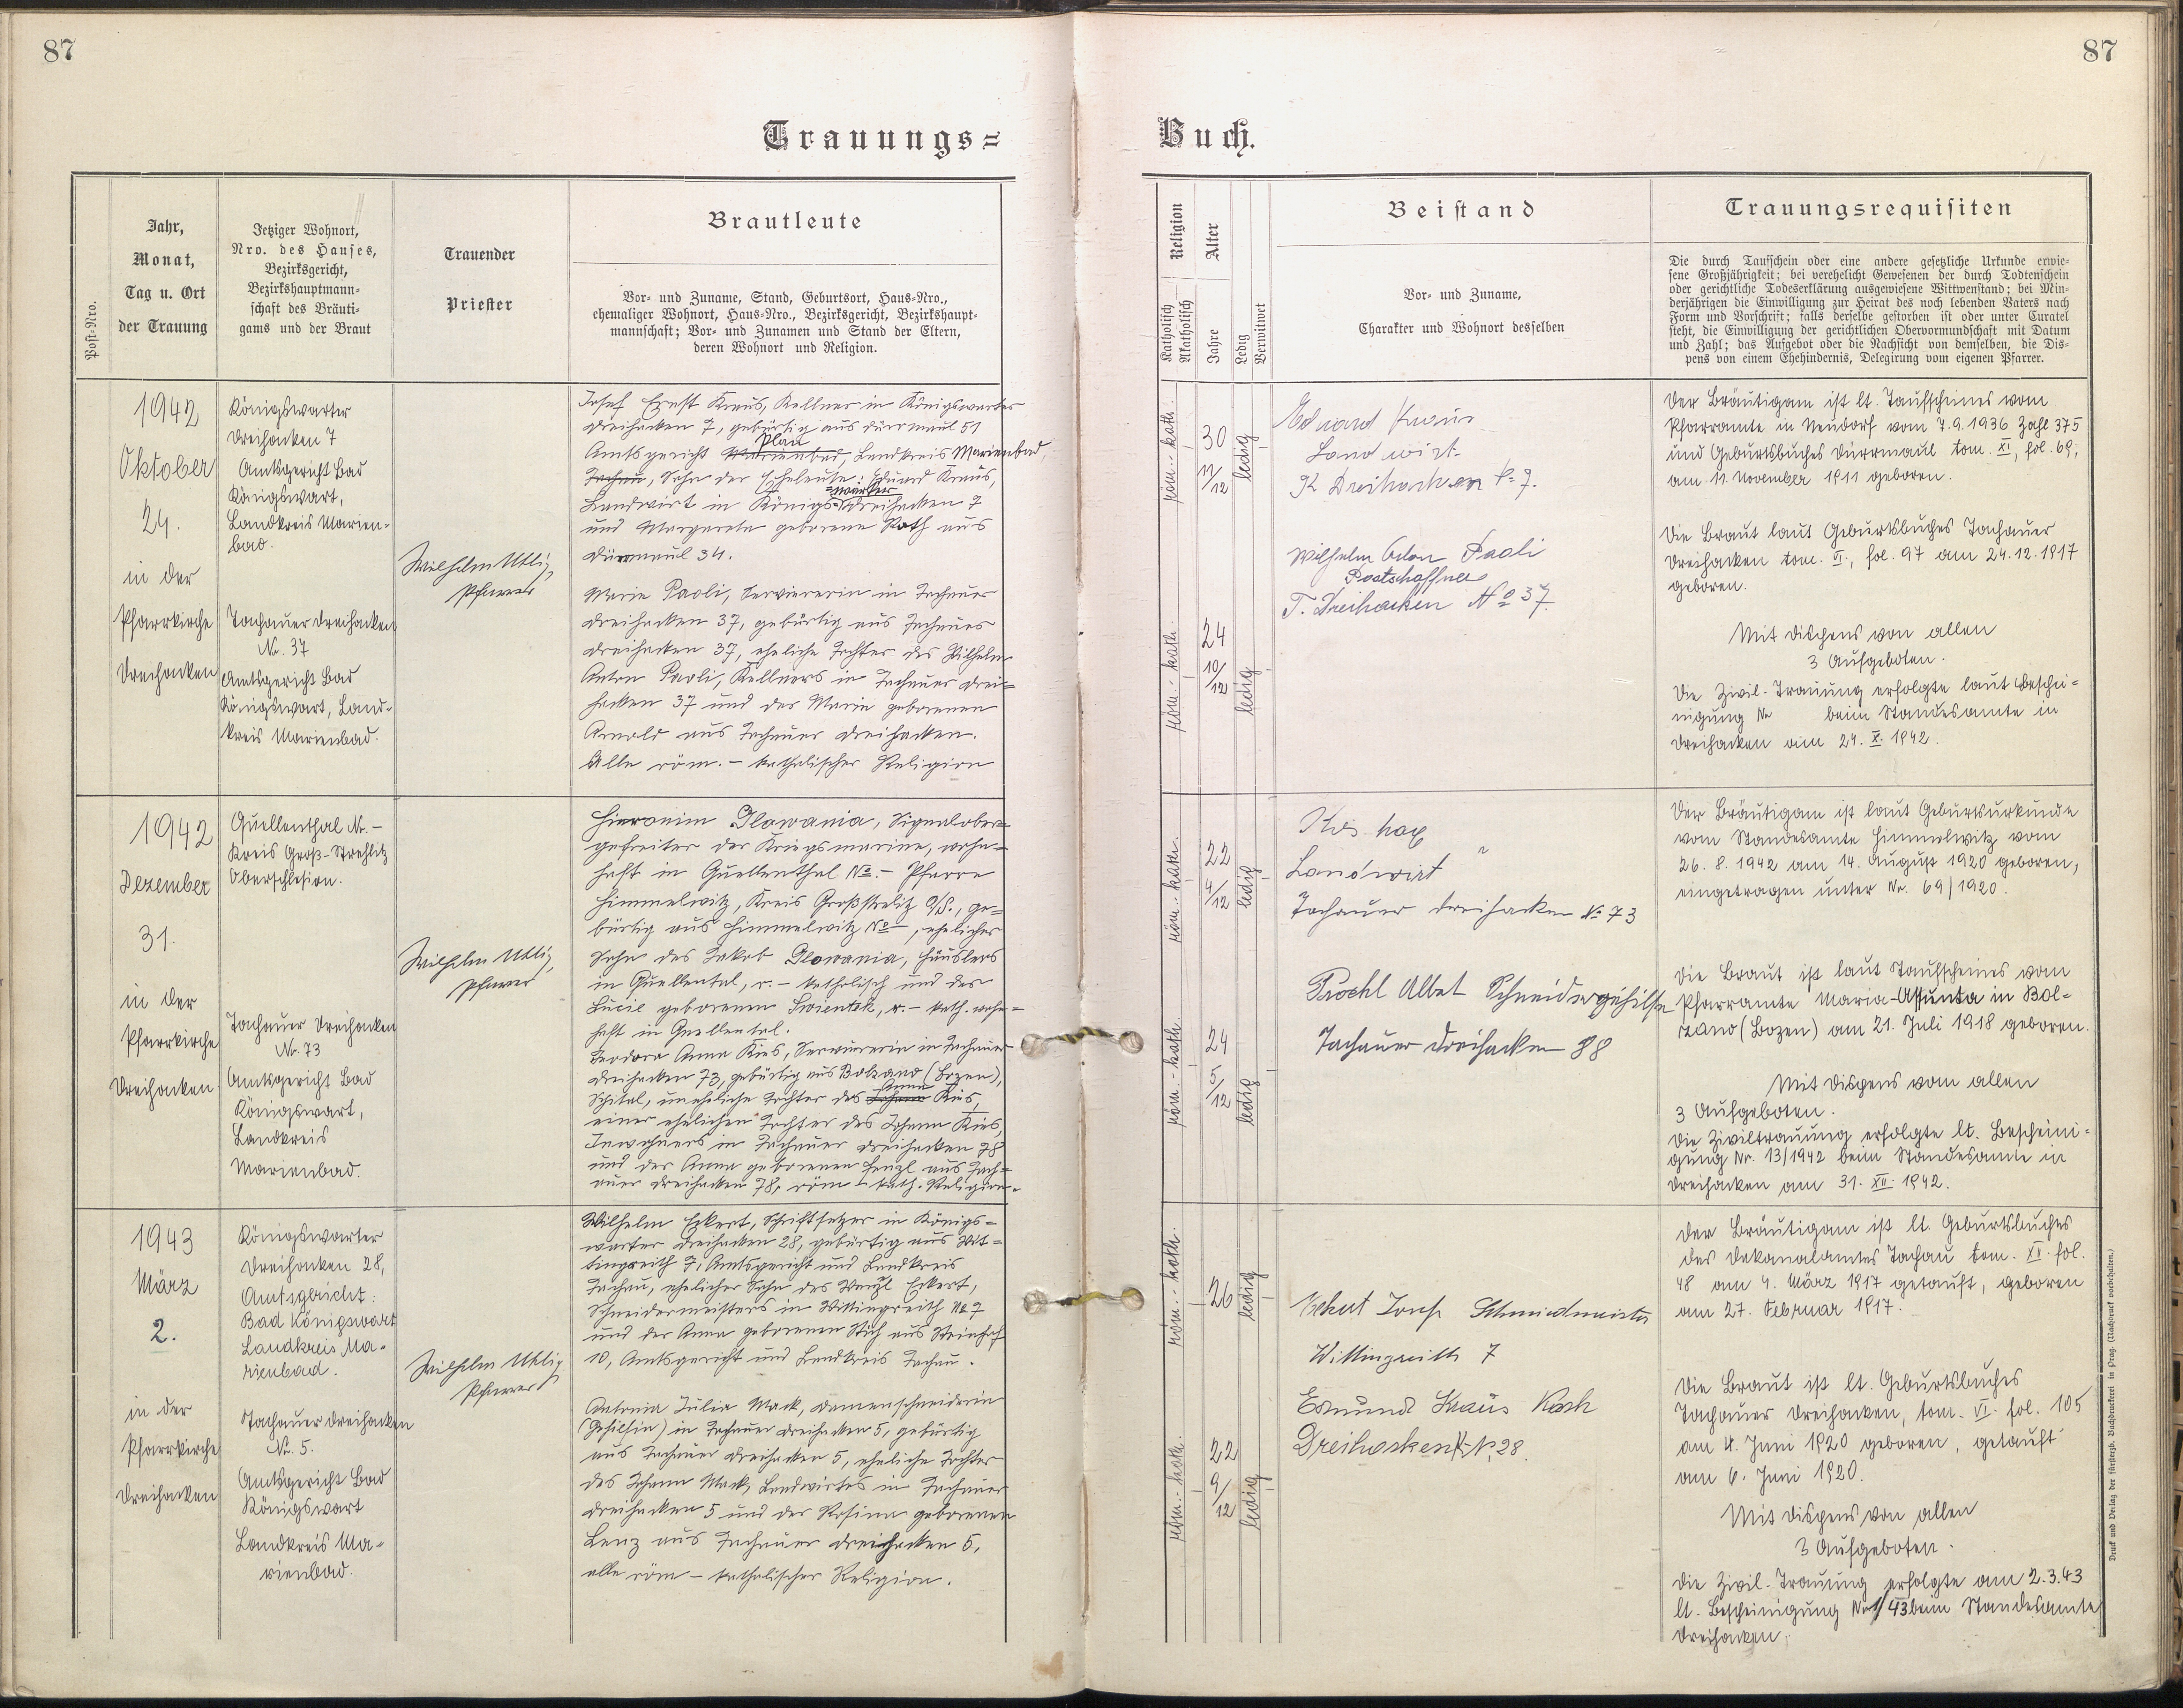 87
87
Trauungs=
Buch.
Post-Nro.
Jahr,
Monat,
Tag u. Ort
der Trauung
Jetziger Wohnort,
Nro. des Hauses,
Bezirksgericht,
Bezirkshauptmann-
schaft des Bräuti-
gams und der Braut
Trauender
Priester
Brautleute
Vor- und Zuname, Stand, Geburtsort, Haus-Nro.,
ehemaliger Wohnort, Haus-Nro., Bezirksgericht, Bezirkshaupt-
mannschaft; Vor- und Zunamen und Stand der Eltern,
deren Wohnort und Religion.
Religion
Katholisch
Akatholisch
Alter
Jahre
Ledig
Verwitwet
Beistand
Vor- und Zuname,
Charakter und Wohnort desselben
Trauungsrequisiten
Die durch Taufschein oder eine andere gesetzliche Urkunde erwie-
sene Großjährigkeit; bei verehelicht Gewesenen der durch Todtenschein
oder gerichtliche Todeserklärung ausgewiesene Wittwenstand; bei Min-
derjährigen die Einwilligung zur Heirat des noch lebenden Vaters nach
Form und Vorschrift; falls derselbe gestorben ist oder unter Curatel
steht, die Einwilligung der gerichtlichen Obervormundschaft mit Datum
und Zahl; das Aufgebot oder die Nachsicht von demselben, die Dis-
pens von einem Ehehindernis, Delegirung vom eigenen Pfarrer.
1942
Oktober
24.
in der
Pfarrkirche
Dreihacken
Königswarter
Dreihacken 7
Amtsgericht Bad
Königswart,
Landkreis Marien-
bad.
Tachauer Dreihacken
Nr. 37
Amtsgericht Bad
Königswart, Land-
kreis Marienbad.
Wilhelm Uhlig,
Pfarrer
Josef Ernst Kraus, Kellner in Königswarter
Dreihacken 7, gebürtig aus Dürrmaul 51
Plan
Amtsgericht Marienbad, Landkreis Marienbad,
Tachau, Sohn der Eheleute: Eduard Kraus,
=warter
Landwirt in Königs=Dreihacken 7
und Margareta geborene Rath aus
Dürrmaul 34.
Marie Paoli, Serviererin in Tachauer
Dreihacken 37, gebürtig aus Tachauer
Dreihacken 37, eheliche Tochter des Wilhelm
Anton Paoli, Kellners in Tachauer Drei=
hacken 37 und der Marie geborenen
Arnold aus Tachauer Dreihacken.
Alle röm. - katholischer Religion
röm.-kath.
30
11/12
ledig
röm.-kath.
24
10/12
ledig
Eduard Kraus
Landwirt
K Dreihacken No 7.
Wilhelm Anton Paoli
Postschaffner
T. Dreihacken No 37
Der Bräutigam ist lt. Taufscheines vom
Pfarramte in Neudorf vom 7.9.1936 Zahl 375
und Geburtsbuches Dürrmaul tom. XI, fol. 69,
am 11. November 1911 geboren.
Die Braut laut Geburtsbuches Tachauer
Dreihacken tom. VI., fol. 97 am 24.12.1917
geboren.
Mit Dispens von allen
3 Aufgeboten.
Die Zivil-Trauung erfolgte laut Beschei-
nigung Nr beim Standesamte in
Dreihacken am 24. X. 1942.
1942
Dezember
31.
in der
Pfarrkirche
Dreihacken
Quellenthal Nr. -
Kreis Groß-Strehlitz
Oberschlesien.
Tachauer Dreihacken
Nr. 73
Amtsgericht Bad
Königswart,
Landkreis
Marienbad.
Wilhelm Uhlig,
Pfarrer
Hieronim Glowania, Signalober=
gefreiter der Kriegsmarine, wohn=
haft in Quellenthal No. - Pfarre
Himmelwitz, Kreis Großstrelitz O/S., ge=
bürtig aus Himmelwitz No -, ehelicher
Sohn des Jakob Glowania, Häuslers
in Quellental, r. - katholisch und der
Lucie geborenen Swientek, r. - kath. wohn=
haft in Quellental.
Teodora Anna Kies, Serviererin in Tachauer
Dreihacken 73, gebürtig aus Bolzano (Bozen),
Anna
Spital, uneheliche Tochter des Johann Kies,
einer ehelichen Tochter des Johann Kies,
Inwohners in Tachauer Dreihacken 78
und der Anna geborenen Henzl aus Tach=
auer Dreihacken 78, röm - kath. Religion.
röm.-kath.
22
4/12
ledig
röm.-kath.
24
5/12
ledig
Kies
Landwirt
Tachauer Dreihacken No 73
Albert Schneidergehilfe
Tachauer Dreihacken 88
Der Bräutigam ist laut Geburtsurkunde
vom Standesamte Himmelwitz vom
26. 8. 1942 am 14. August 1920 geboren,
eingetragen unter Nr. 69/1920.
Die Braut ist laut Taufscheines vom
Pfarramte Maria-Assunta in Bol-
zano (Bozen) am 21. Juli 1918 geboren.
Mit Dispens vom allen
3 Aufgeboten.
Die Ziviltrauung erfolgte lt. Bescheini-
gung Nr. 13/1942 beim Standesamte in
Dreihacken am 31. XII. 1942.
1943
März
2.
in der
Pfarrkirche
Dreihacken
Königswarter
Dreihacken 28,
Amtsgericht:
Bad Königswart
Landkreis Ma-
rienbad.
Tachauer Dreihacken
Nr. 5.
Amtsgericht Bad
Königswart
Landkreis Ma-
rienbad.
Wilhelm Uhlig
Pfarrer
Wilhelm Eckert, Schriftsetzer in Königs=
warter Dreihacken 28, gebürtig aus Wit=
tingreith 7, Amtsgericht und Landkreis
Tachau, ehelicher Sohn des Wenzl Eckert,
Schneidermeisters in Wittingreith No 7
und der Anna geborenen Stich aus
10, Amtsgericht und Landkreis Tachau.
Antonia Julia Mack, Damenschneiderin
(Gehilfin) in Tachauer Dreihacken 5, gebürtig
aus Tachauer Dreihacken 5, eheliche Tochter
des Johann Mack, Landwirtes in Tachauer
Dreihacken 5 und der Rosina geborenen
Lenz aus Tachauer Dreihacken 5,
alle röm - katholischer Religion.
röm.-kath.
26
ledig
röm.-kath.
22
9/12
ledig
Eckert Josef Schmiedmeister
Wittingreith 7
Edmund Kraus Koch
Dreihacken K-No 28.
Der Bräutigam ist lt. Geburtsbuches
des Dekanalamtes Tachau tom. XII. fol.
48 am 4. März 1917 getauft, geboren
am 27. Februar 1917.
Die Braut ist lt. Geburtsbuches
Tachauer Dreihacken, tom. VI. fol. 105
am 4. Juni 1920 geboren, getauft
am 6. Juni 1920.
Mit Dispens von allen
3 Aufgeboten.
Die Zivil-Trauung erfolgte am 2.3.43
lt. Bescheinigung Nr 1/43 beim Standesamte
Dreihacken.
Druck und Verlag der fürsterzb. Buchdruckerei in Prag. (Nachdruck vorbehalten.)